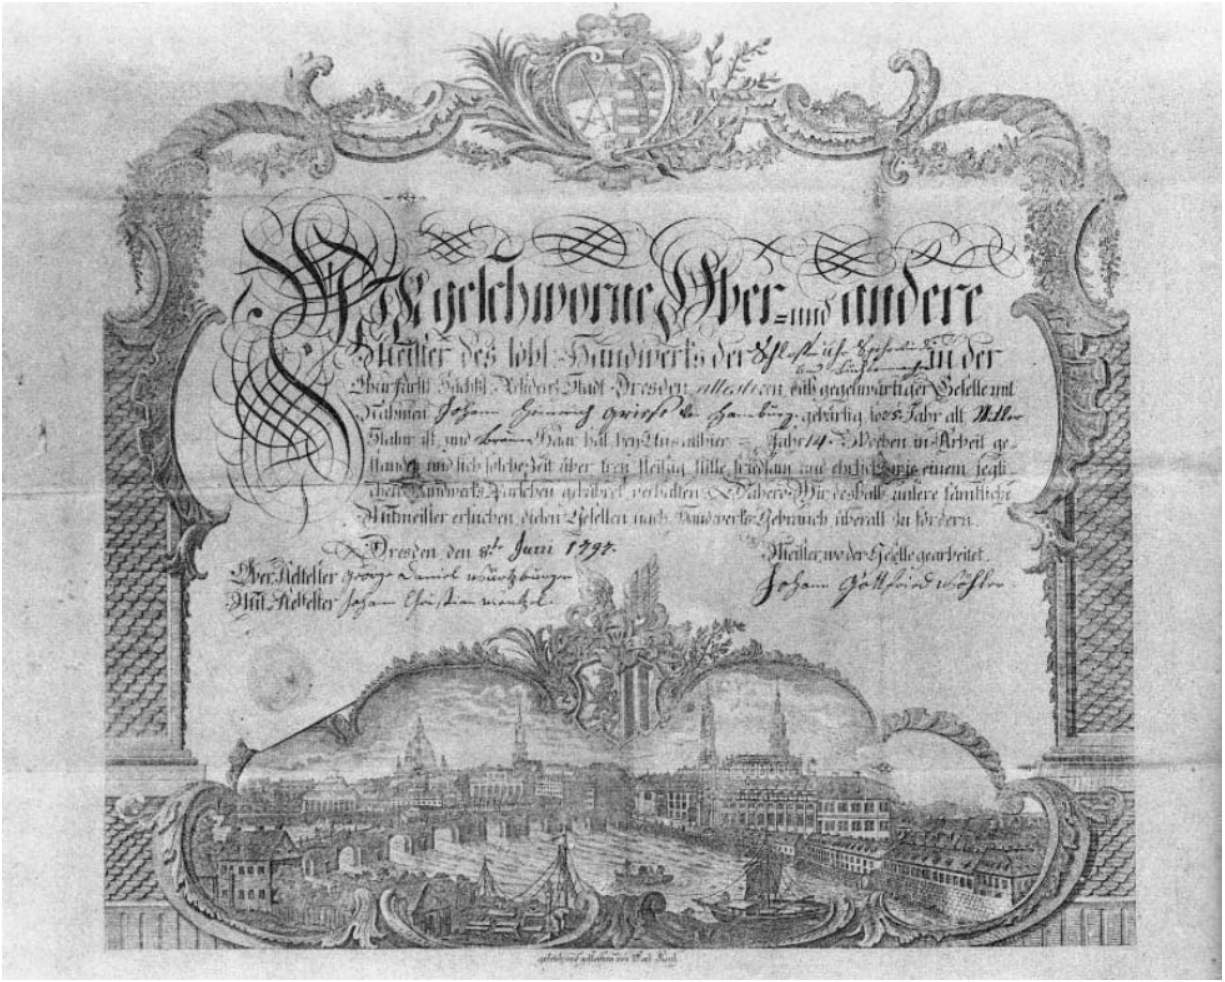 Wir geschworne Ober- und andere
Meister des löbl. Handwerks der Schloss, Uhr, Spohr, und in der
Büchsenmacher
Churfürstl. Sächsl. Residenz Stadt Dresden attestiren daß gegenwärtiger Geselle mit
Nahmen Johann Heinrich von Hamburg gebürtig so 25 Jahr alt Mitler
Statur ist, und braun Haar hat bey Uns allhier = Jahr 14 = Wochen in Arbeit ge-
standen und sich solche Zeit über treu fleißig stille friedsam und ehrlich wie einem jegli-
chen Handwerks Purschen gebühret verhalten Dahero Wir deshalb unsere sämtliche
Mitmeister ersuchen diesen Gesellen nach Handwerks Gebrauch überall zu fördern.
Dresden den 8t. Juni 1797.
Meister, wo der Geselle gearbeitet.
Ober-Aeltester George Daniel Würtzburger
Johann Gottfried Wöhler
Mit-Aeltester Johann Christian Mentzel